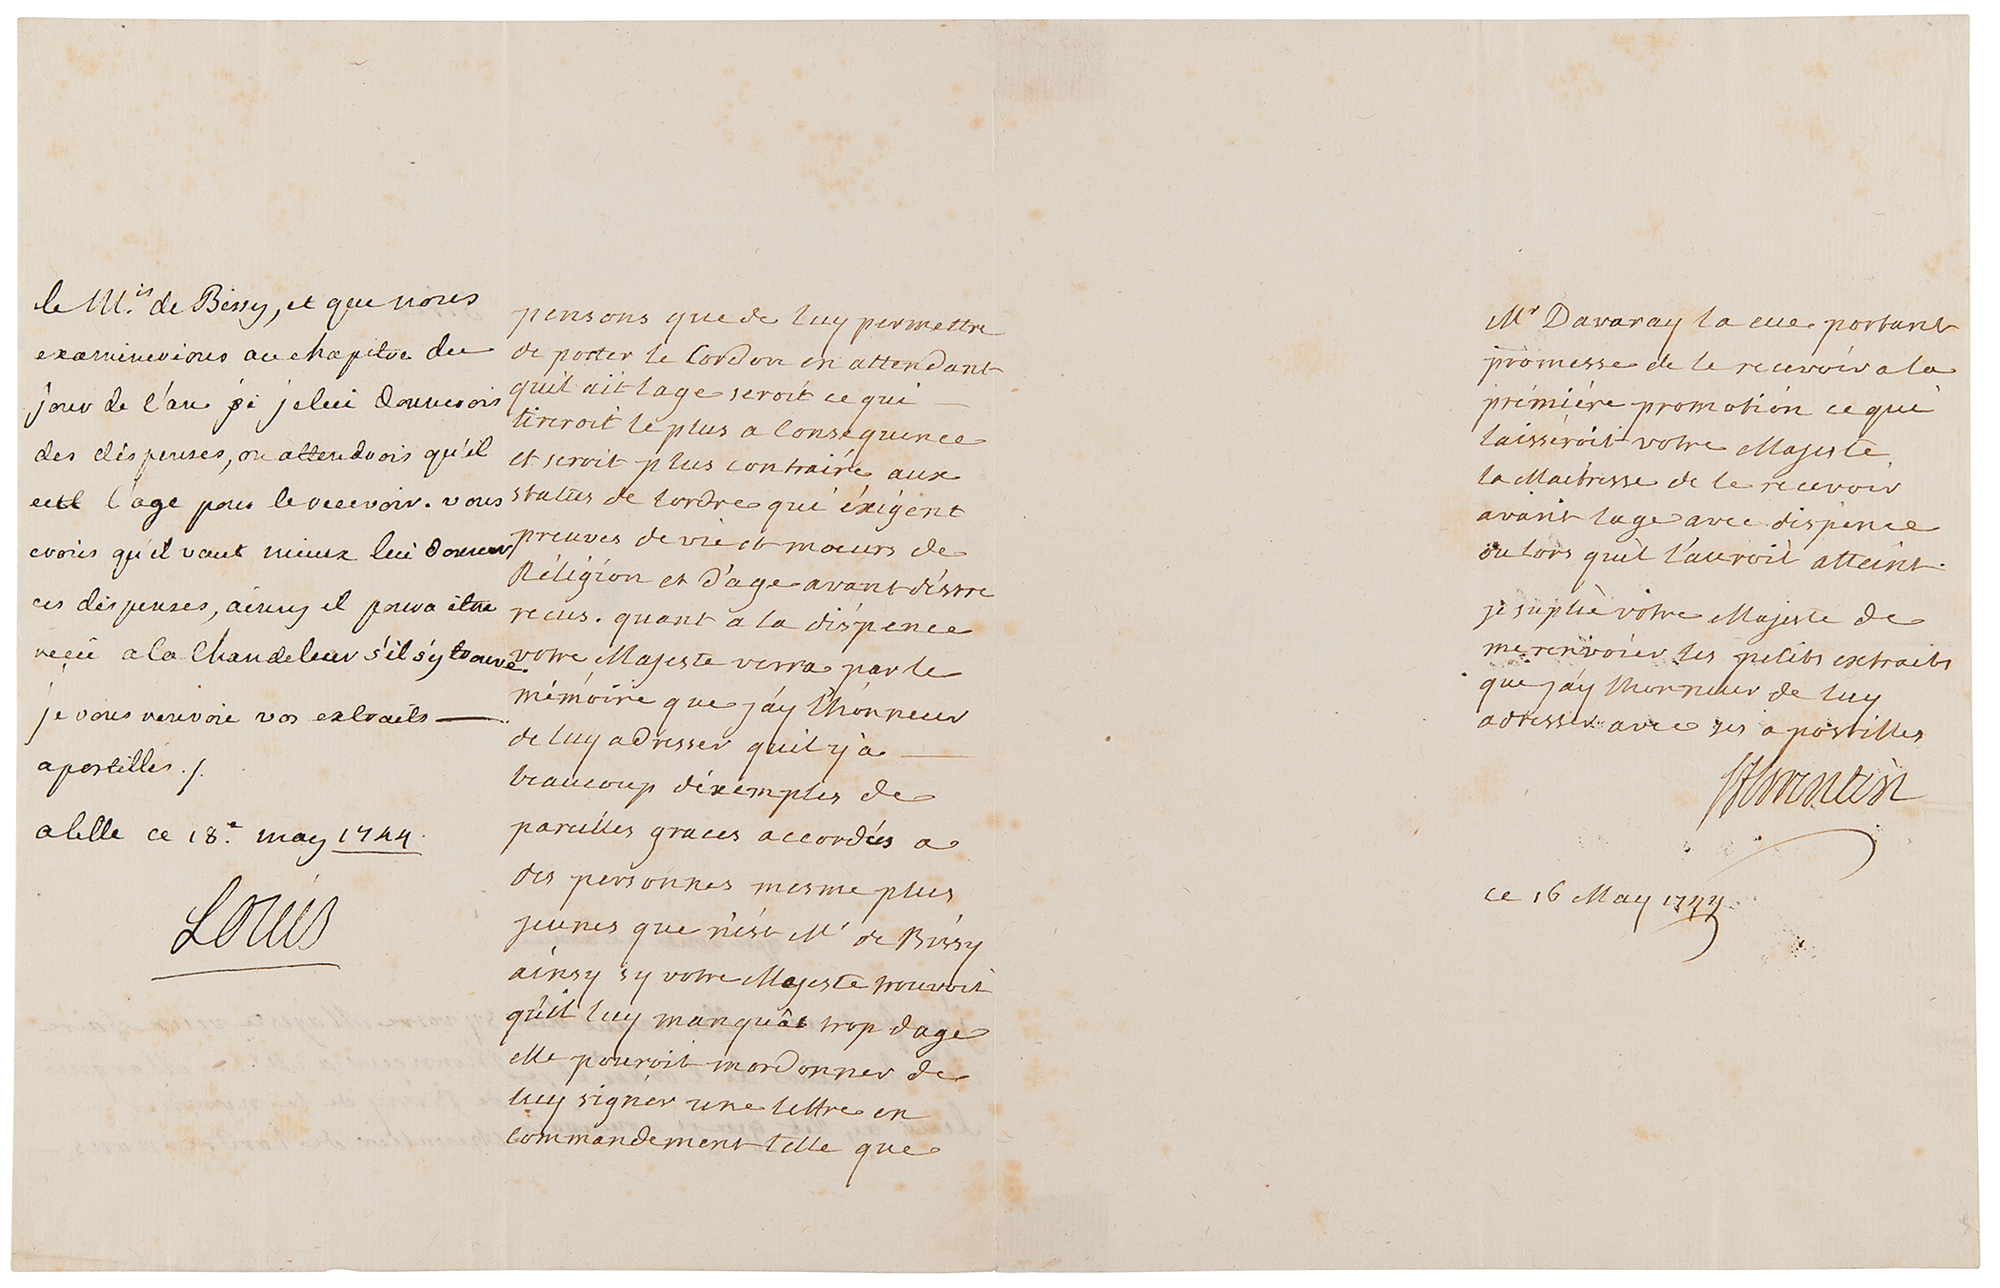 le M.is de Bissy, et que nous
examinerions au chapitre du
jour de l'an si je lui donnerois
des dispenses, ou attendrois qu'il
eut l'age pour le recevoir. vous
croiés qu'il vaut mieux lui donner
ces dispenses, ainsy il poura etre
reçu a la Chandeleur s'il s'y trouve
je vous renvoie vos extraits
apostillés ./.
a lille ce 18.e may 1744.
Louis
pensons que de luy permettre
de porter le Cordon en attendant
quil ait lage seroit ce qui
tireroit le plus a Consequence
et seroit plus contraire aux
statuts de lordre qui éxigent
preuves de vie et moeurs de
Réligion et d'age avant déstre
recus. quant a la dispence
votre Majeste verra par le
mémoire que j'ay l'honneur
de luy adresser quil y a
beaucoup déxemples de
pareilles graces accordées a
des personnes mesme plus
jeunes que n'est Mr de Bissy
ainsy sy votre Majeste trouvoit
qu'il luy manquât trop dage
elle pouroit mordonner de
luy signer une lettre en
Commandement telle que
Mr Davaray la eue portant
promesse de le recevoir a la
premiére promotion ce qui
laisseroit votre Majeste
la Maitresse de le recevoir
avant lage avec dispence
ou lors quil l'auroit atteint.
je suplie votre Majeste de
me renvoier les petits extraits
que j'ay lhonneur de luy
adresser avec ses apostilles
St florentin
ce 16 May 1744